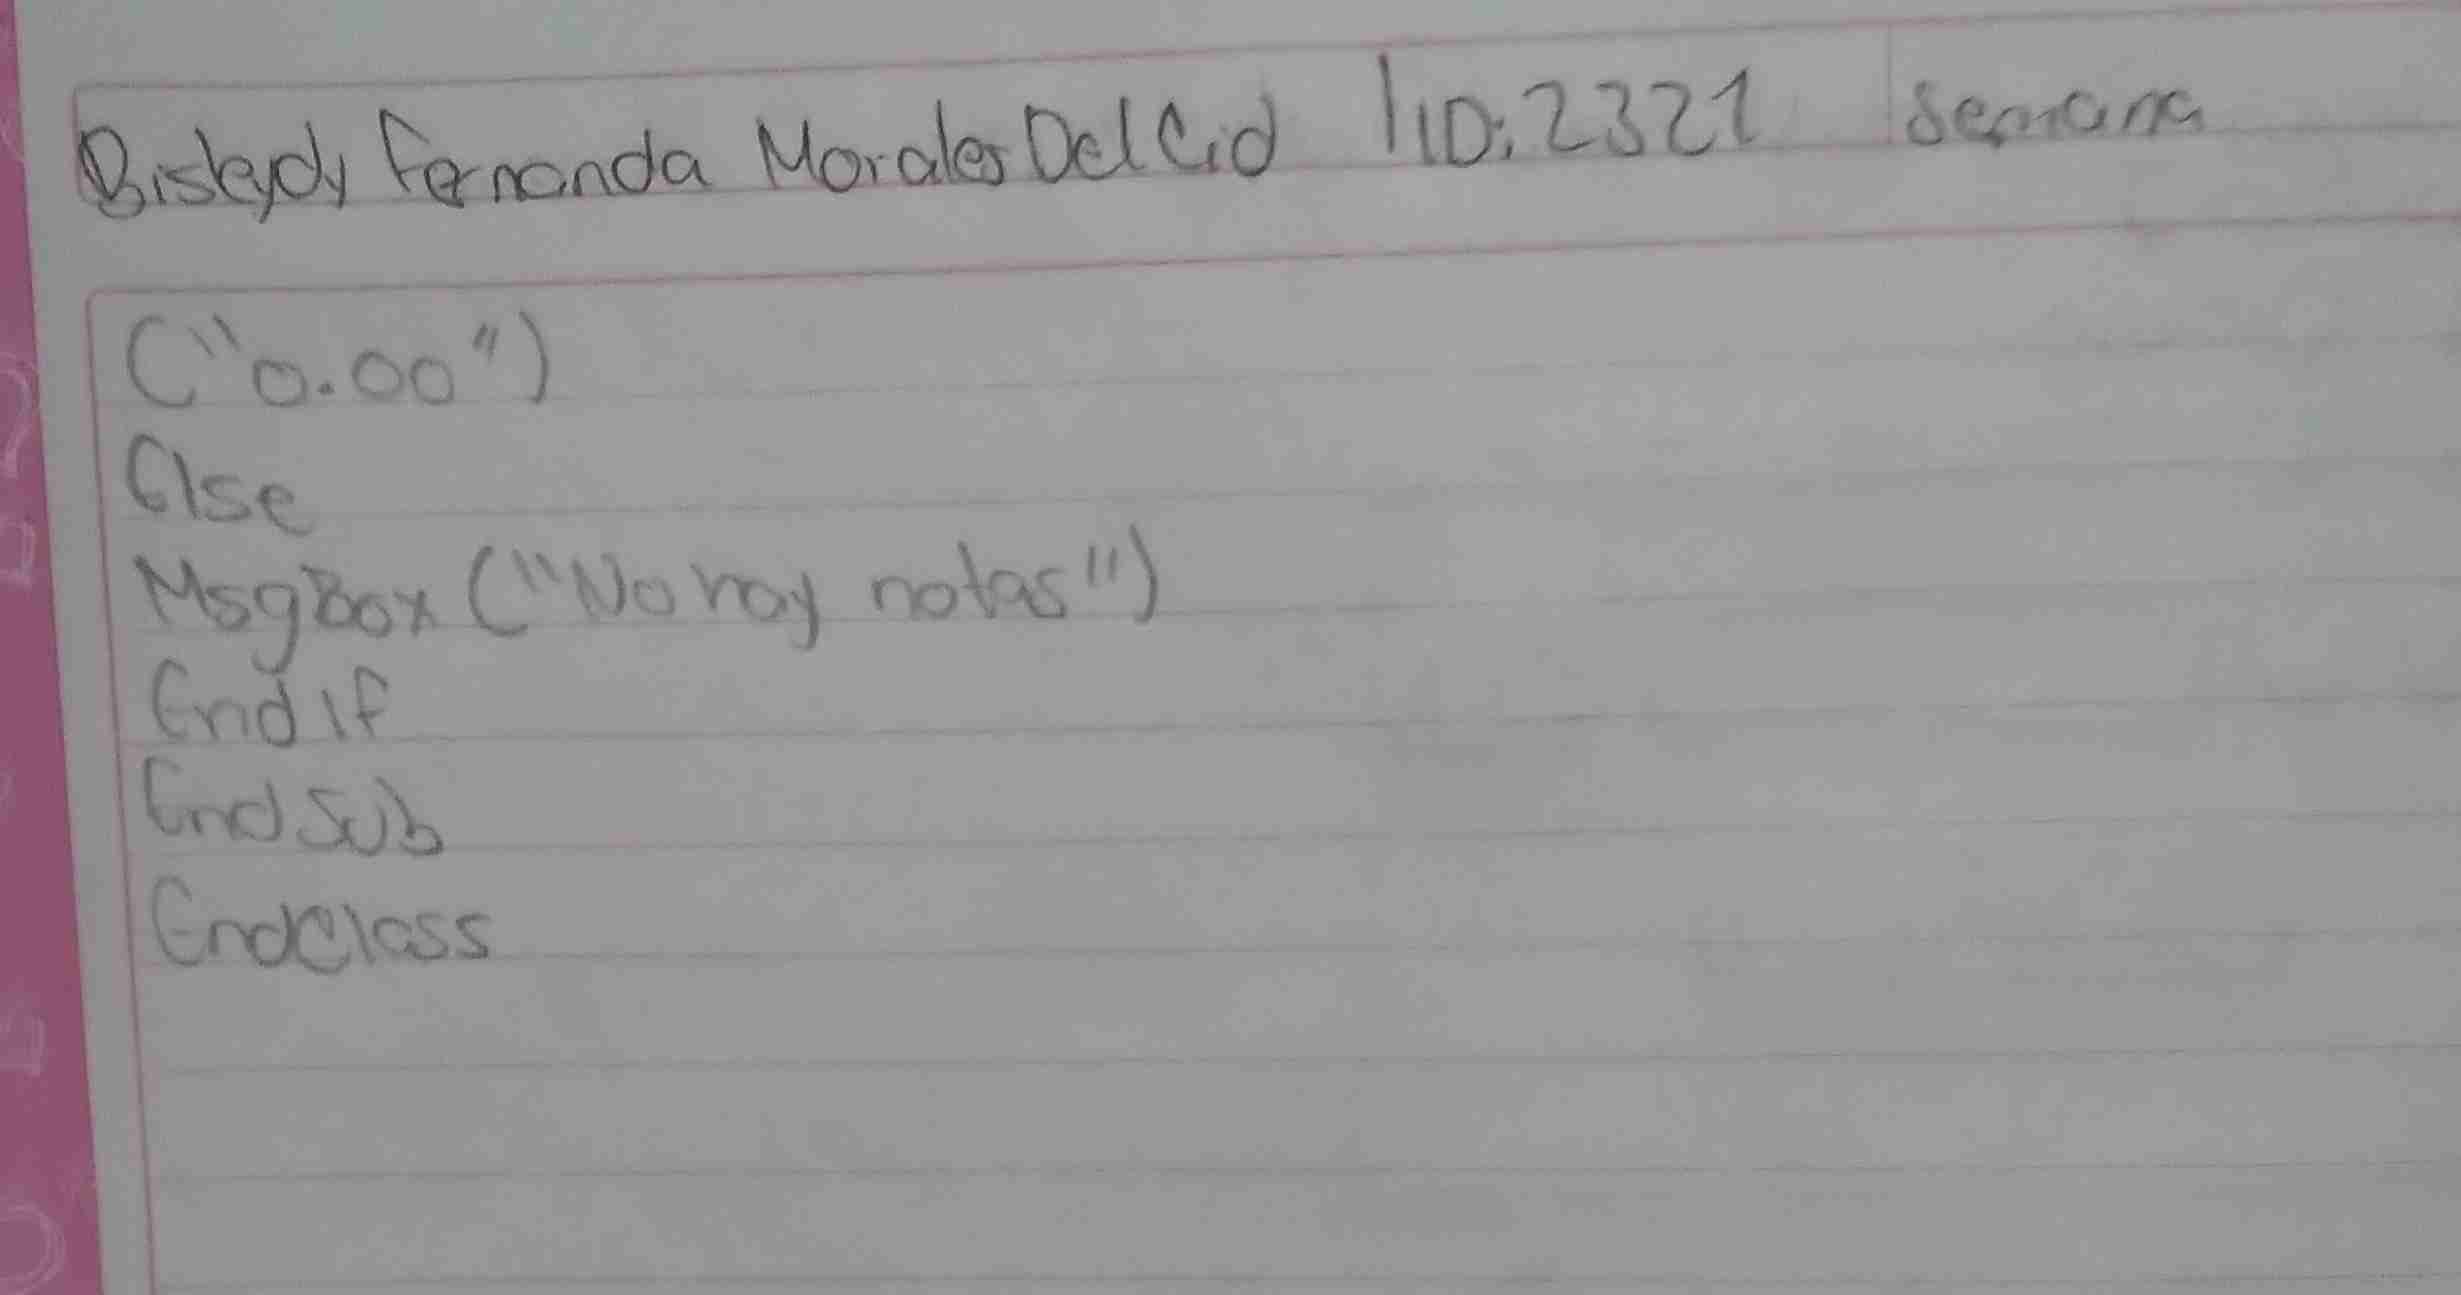 Bisleydy Fernanda Morales Del Cid | ID: 2321 semana
("0.00")
Else
MsgBox ("No hay notas")
End If
End Sub
End Class